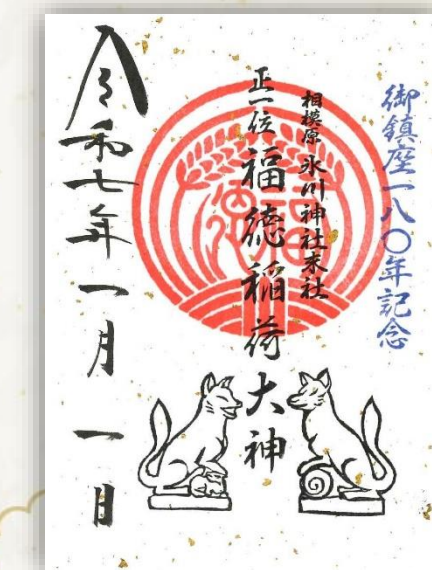 御鎮座一八〇年記念
相模原 氷川神社末社
正一位 福徳稲荷大神
令和七年一月一日
福徳